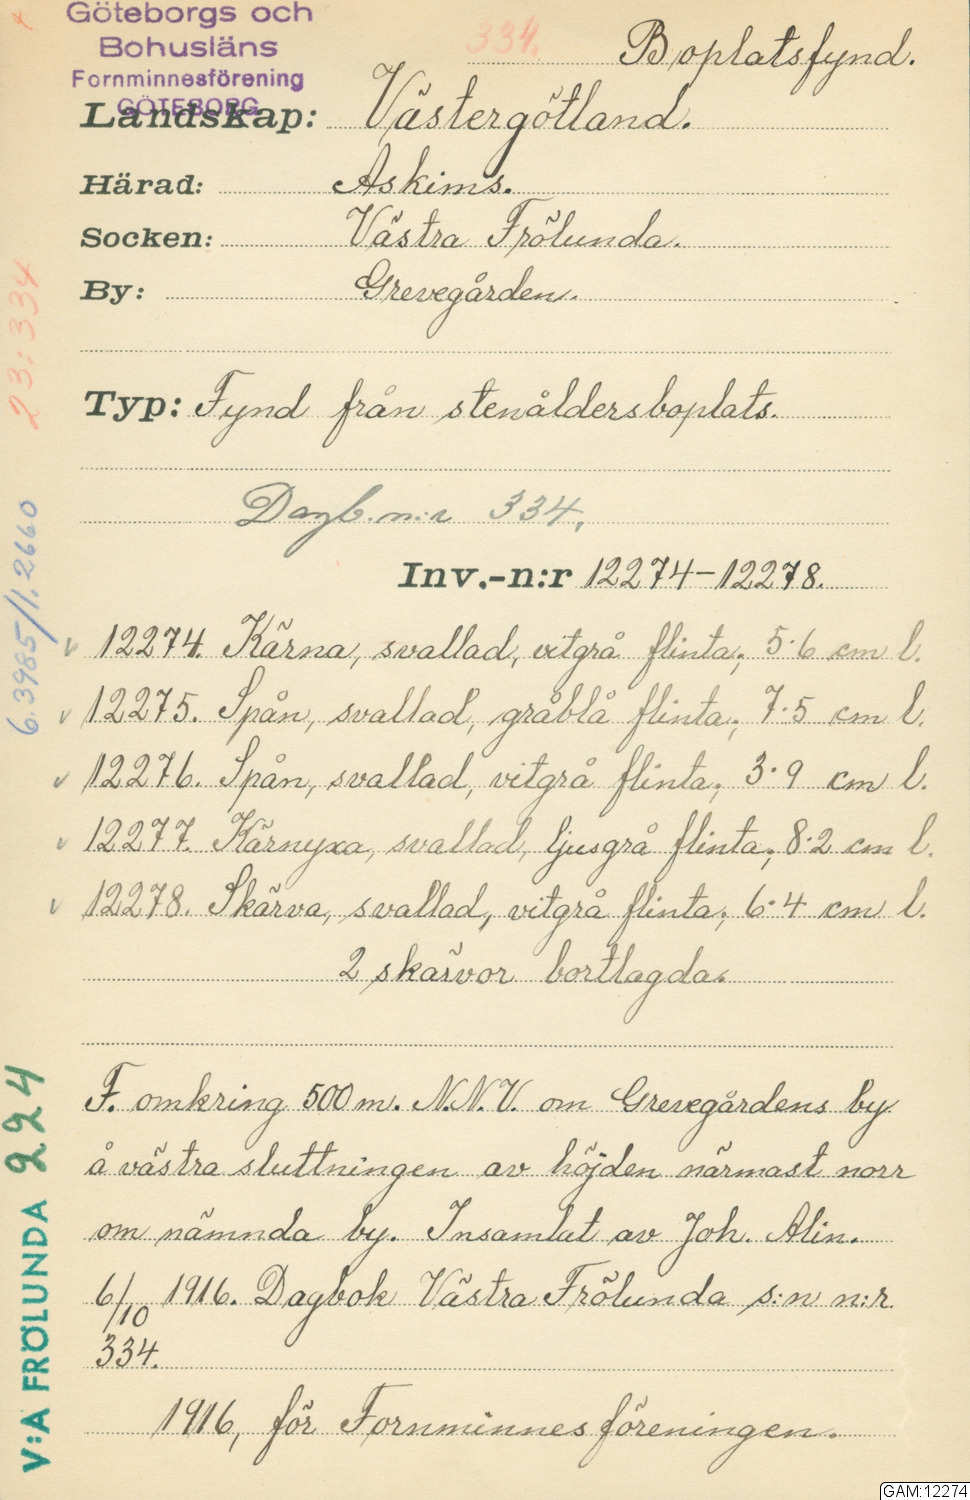 Göteborgs och
Bohusläns
Fornminnesförening
GÖTEBORG
334.
Boplatsfynd.
Landskap: Västergötland.
Härad: Askims.
Socken: Västra Frölunda.
By: Grevegården.
Typ: Fynd från stenåldersboplats.
Dagb. n:r 334.
Inv.-n:r 12274-12278.
12274. Kärna, svallad, vitgrå flinta; 5·6 cm l.
12275. Spån, svallad, gråblå flinta; 7·5 cm l.
12276. Spån, svallad, vitgrå flinta; 3·9 cm l.
12277. Kärnyxa, svallad, ljusgrå flinta; 8·2 cm l.
12278. Skärva, svallad, vitgrå flinta; 6·4 cm l.
2 skärvor bortlagda.
F. omkring 500 m. N.N.V. om Grevegårdens by
å västra sluttningen av höjden närmast norr
om nämnda by. Insamlat av Joh. Alin.
6/10 1916. Dagbok Västra Frölunda s:n n:r
334.
1916, för Fornminnesföreningen.
23:334
6.3985/1.2660
V:A FRÖLUNDA 224
GAM:12274